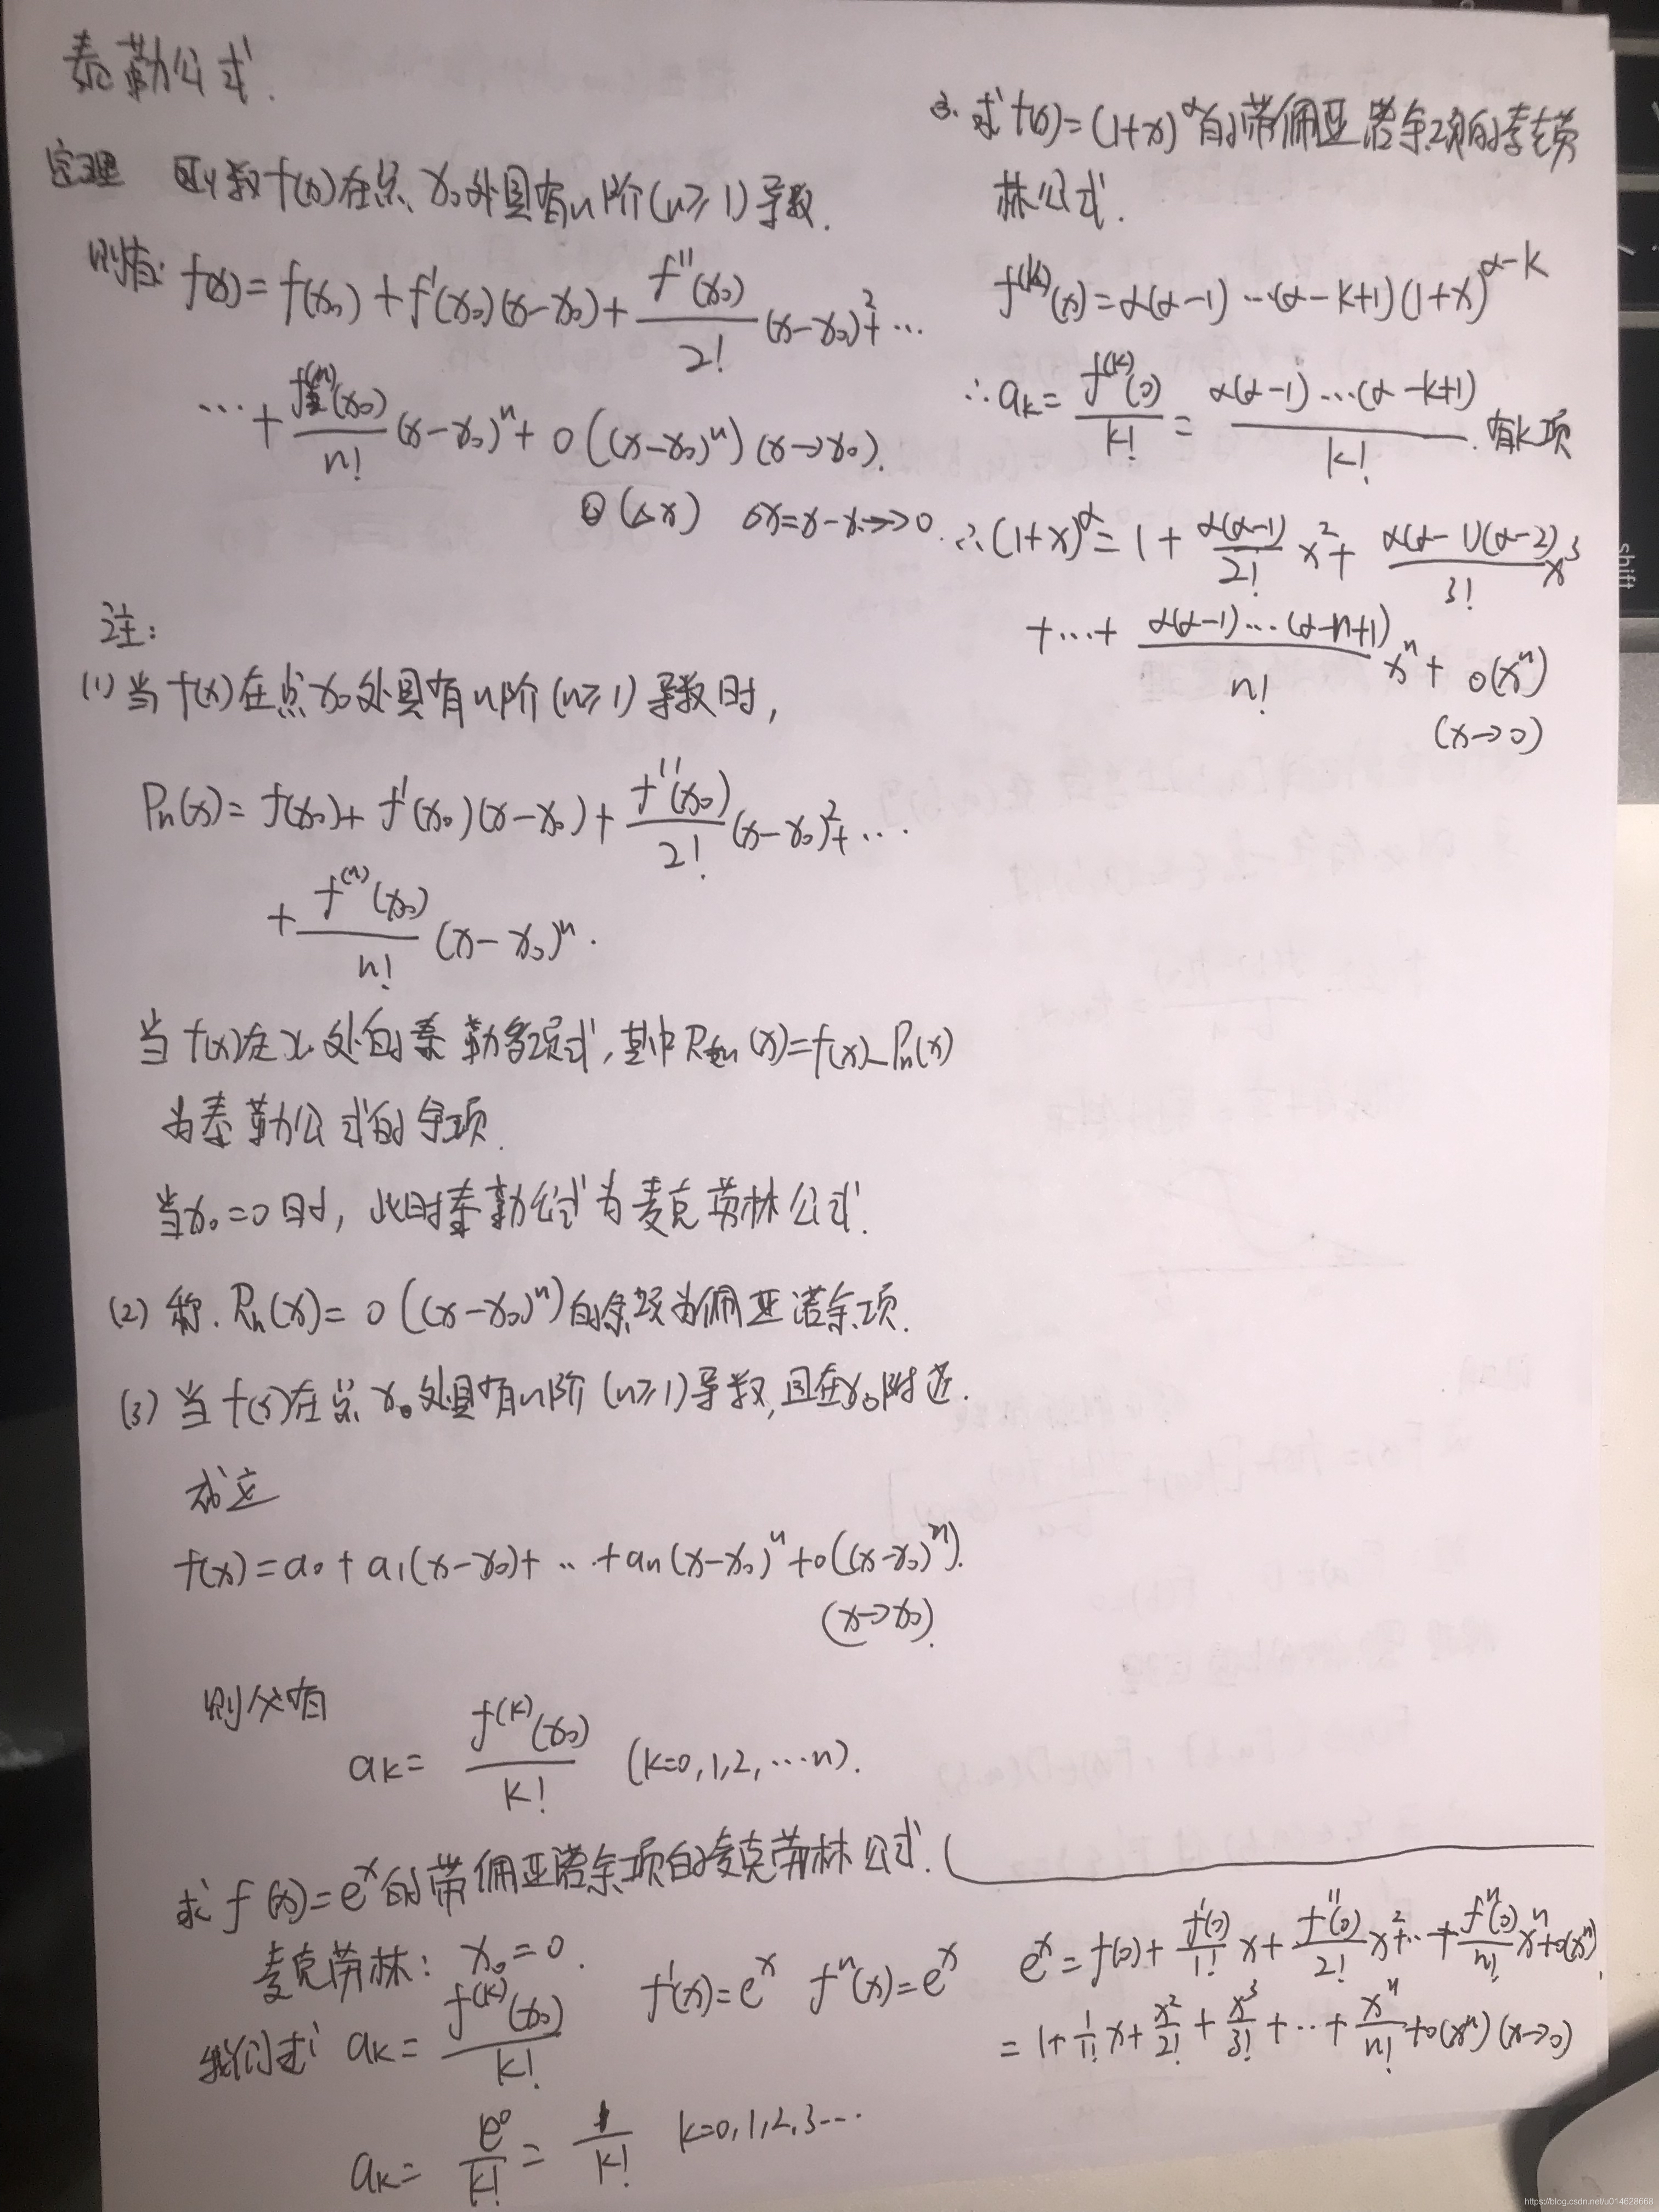 泰勒公式.
定理 函数f(x)在点x₀处具有n阶(n≥1)导数.
则有: f(x)=f(x₀)+f'(x₀)(x-x₀)+f''(x₀)/2!(x-x₀)²+…
…+f⁽ⁿ⁾(x₀)/n!(x-x₀)ⁿ+o((x-x₀)ⁿ)(x→x₀).
o(△x) △x=x-x₀→0.
注:
(1)当f(x)在点x₀处具有n阶(n≥1)导数时,
Pn(x)=f(x₀)+f'(x₀)(x-x₀)+f''(x₀)/2!(x-x₀)²+…
+f⁽ⁿ⁾(x₀)/n!(x-x₀)ⁿ.
当f(x)在x₀处的泰勒多项式,其中Rn(x)=f(x)-Pn(x)
为泰勒公式的余项.
当x₀=0时,此时泰勒公式为麦克劳林公式.
(2)称.Rn(x)=o((x-x₀)ⁿ)的余项为佩亚诺余项.
(3)当f(x)在点x₀处具有n阶(n≥1)导数,且在x₀附近.
成立
f(x)=a₀+a₁(x-x₀)+…+an(x-x₀)ⁿ+o((x-x₀)ⁿ).
(x→x₀).
则必有
ak=f⁽ᵏ⁾(x₀)/k! (k=0,1,2,…n).
求f(x)=eˣ的带佩亚诺余项的麦克劳林公式.
麦克劳林: x₀=0.
我们求 ak=f⁽ᵏ⁾(x₀)/k! f'(x)=eˣ fⁿ(x)=eˣ
ak=e⁰/k!=1/k! k=0,1,2,3…
eˣ=f(0)+f'(0)/1!x+f''(0)/2!x²+…+fⁿ(0)/n!xⁿ+o(xⁿ).
=1+1/1!x+x²/2!+x³/3!+…+xⁿ/n!+o(xⁿ)(x→0)
3.求f(x)=(1+x)^α的带佩亚诺余项的麦克劳
林公式.
f⁽ᵏ⁾(x)=α(α-1)…(α-k+1)(1+x)^(α-k)
∴ak=f⁽ᵏ⁾(0)/k!=α(α-1)…(α-k+1)/k!.有k项
∴(1+x)^α=1+α(α-1)/2!x²+α(α-1)(α-2)/3!x³
+…+α(α-1)…(α-n+1)/n!xⁿ+o(xⁿ)
(x→0)
shift
https://blog.csdn.net/u014628668